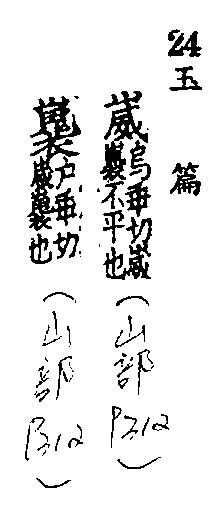 24 玉篇
崴烏乖切崴㠢不平也（山部 P312）
㠢户乖切崴㠢也（山部 P312）